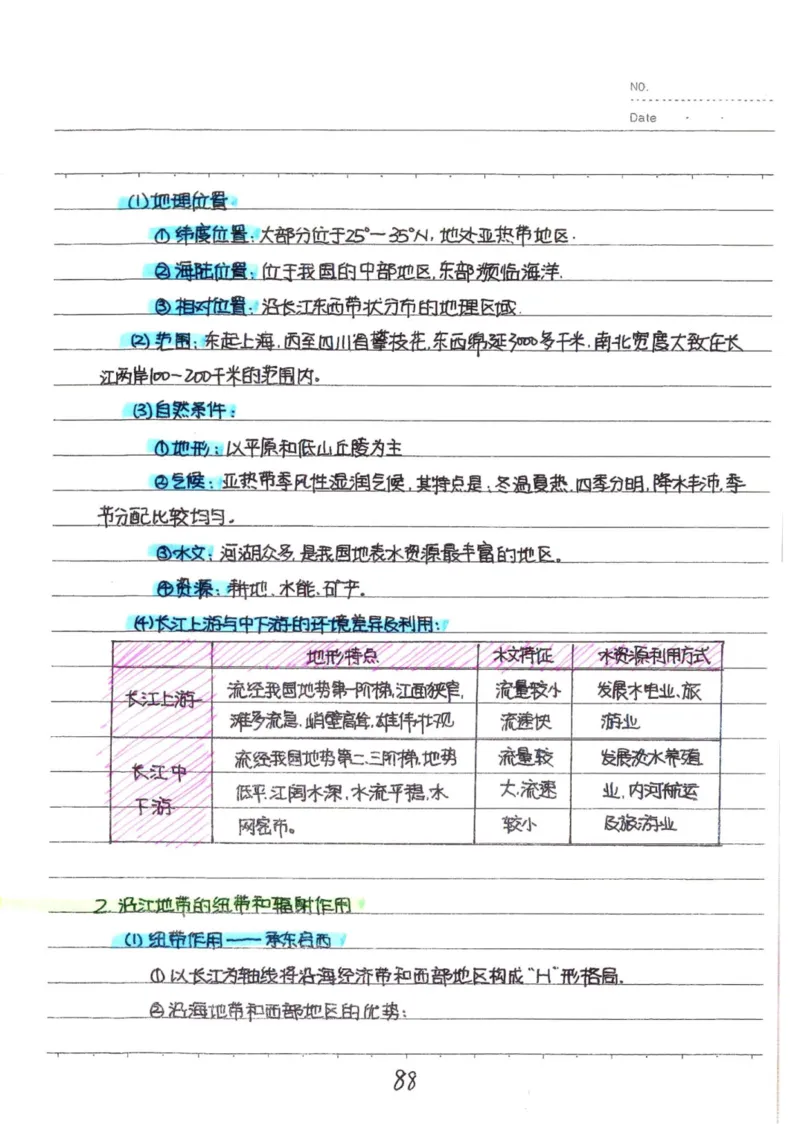 NO.
Date
(1)地理位置
①纬度位置:大部分位于25°—35°N,地处亚热带地区.
②海陆位置:位于我国的中部地区,东部濒临海洋.
③相对位置:沿长江东西带状分布的地理区域.
(2)范围:东起上海,西至四川省攀枝花,东西绵延3000多千米,南北宽度大致在长
江两岸100~200千米的范围内。
(3)自然条件:
①地形:以平原和低山丘陵为主
②气候:亚热带季风性湿润气候,其特点是:冬温夏热、四季分明,降水丰沛,季
节分配比较均匀。
③水文:河湖众多,是我国地表水资源最丰富的地区。
④资源:耕地、水能、矿产。
(4)长江上游与中下游的环境差异及利用:
地形特点 水文特征 水资源利用方式
长江上游 流经我国地势第一阶梯,江面狭窄, 流量较小 发展水电业、旅
滩多流急、峭壁高耸、雄伟壮观 流速快 游业
流经我国地势第二、三阶梯,地势 流量较 发展淡水养殖
长江中 低平,江阔水深,水流平稳,水 大,流速 业,内河航运
下游 网密布。 较小 及旅游业
2.沿江地带的纽带和辐射作用
(1)纽带作用——承东启西
①以长江为轴线将沿海经济带和西部地区构成“H”形格局.
②沿海地带和西部地区的优势:
88